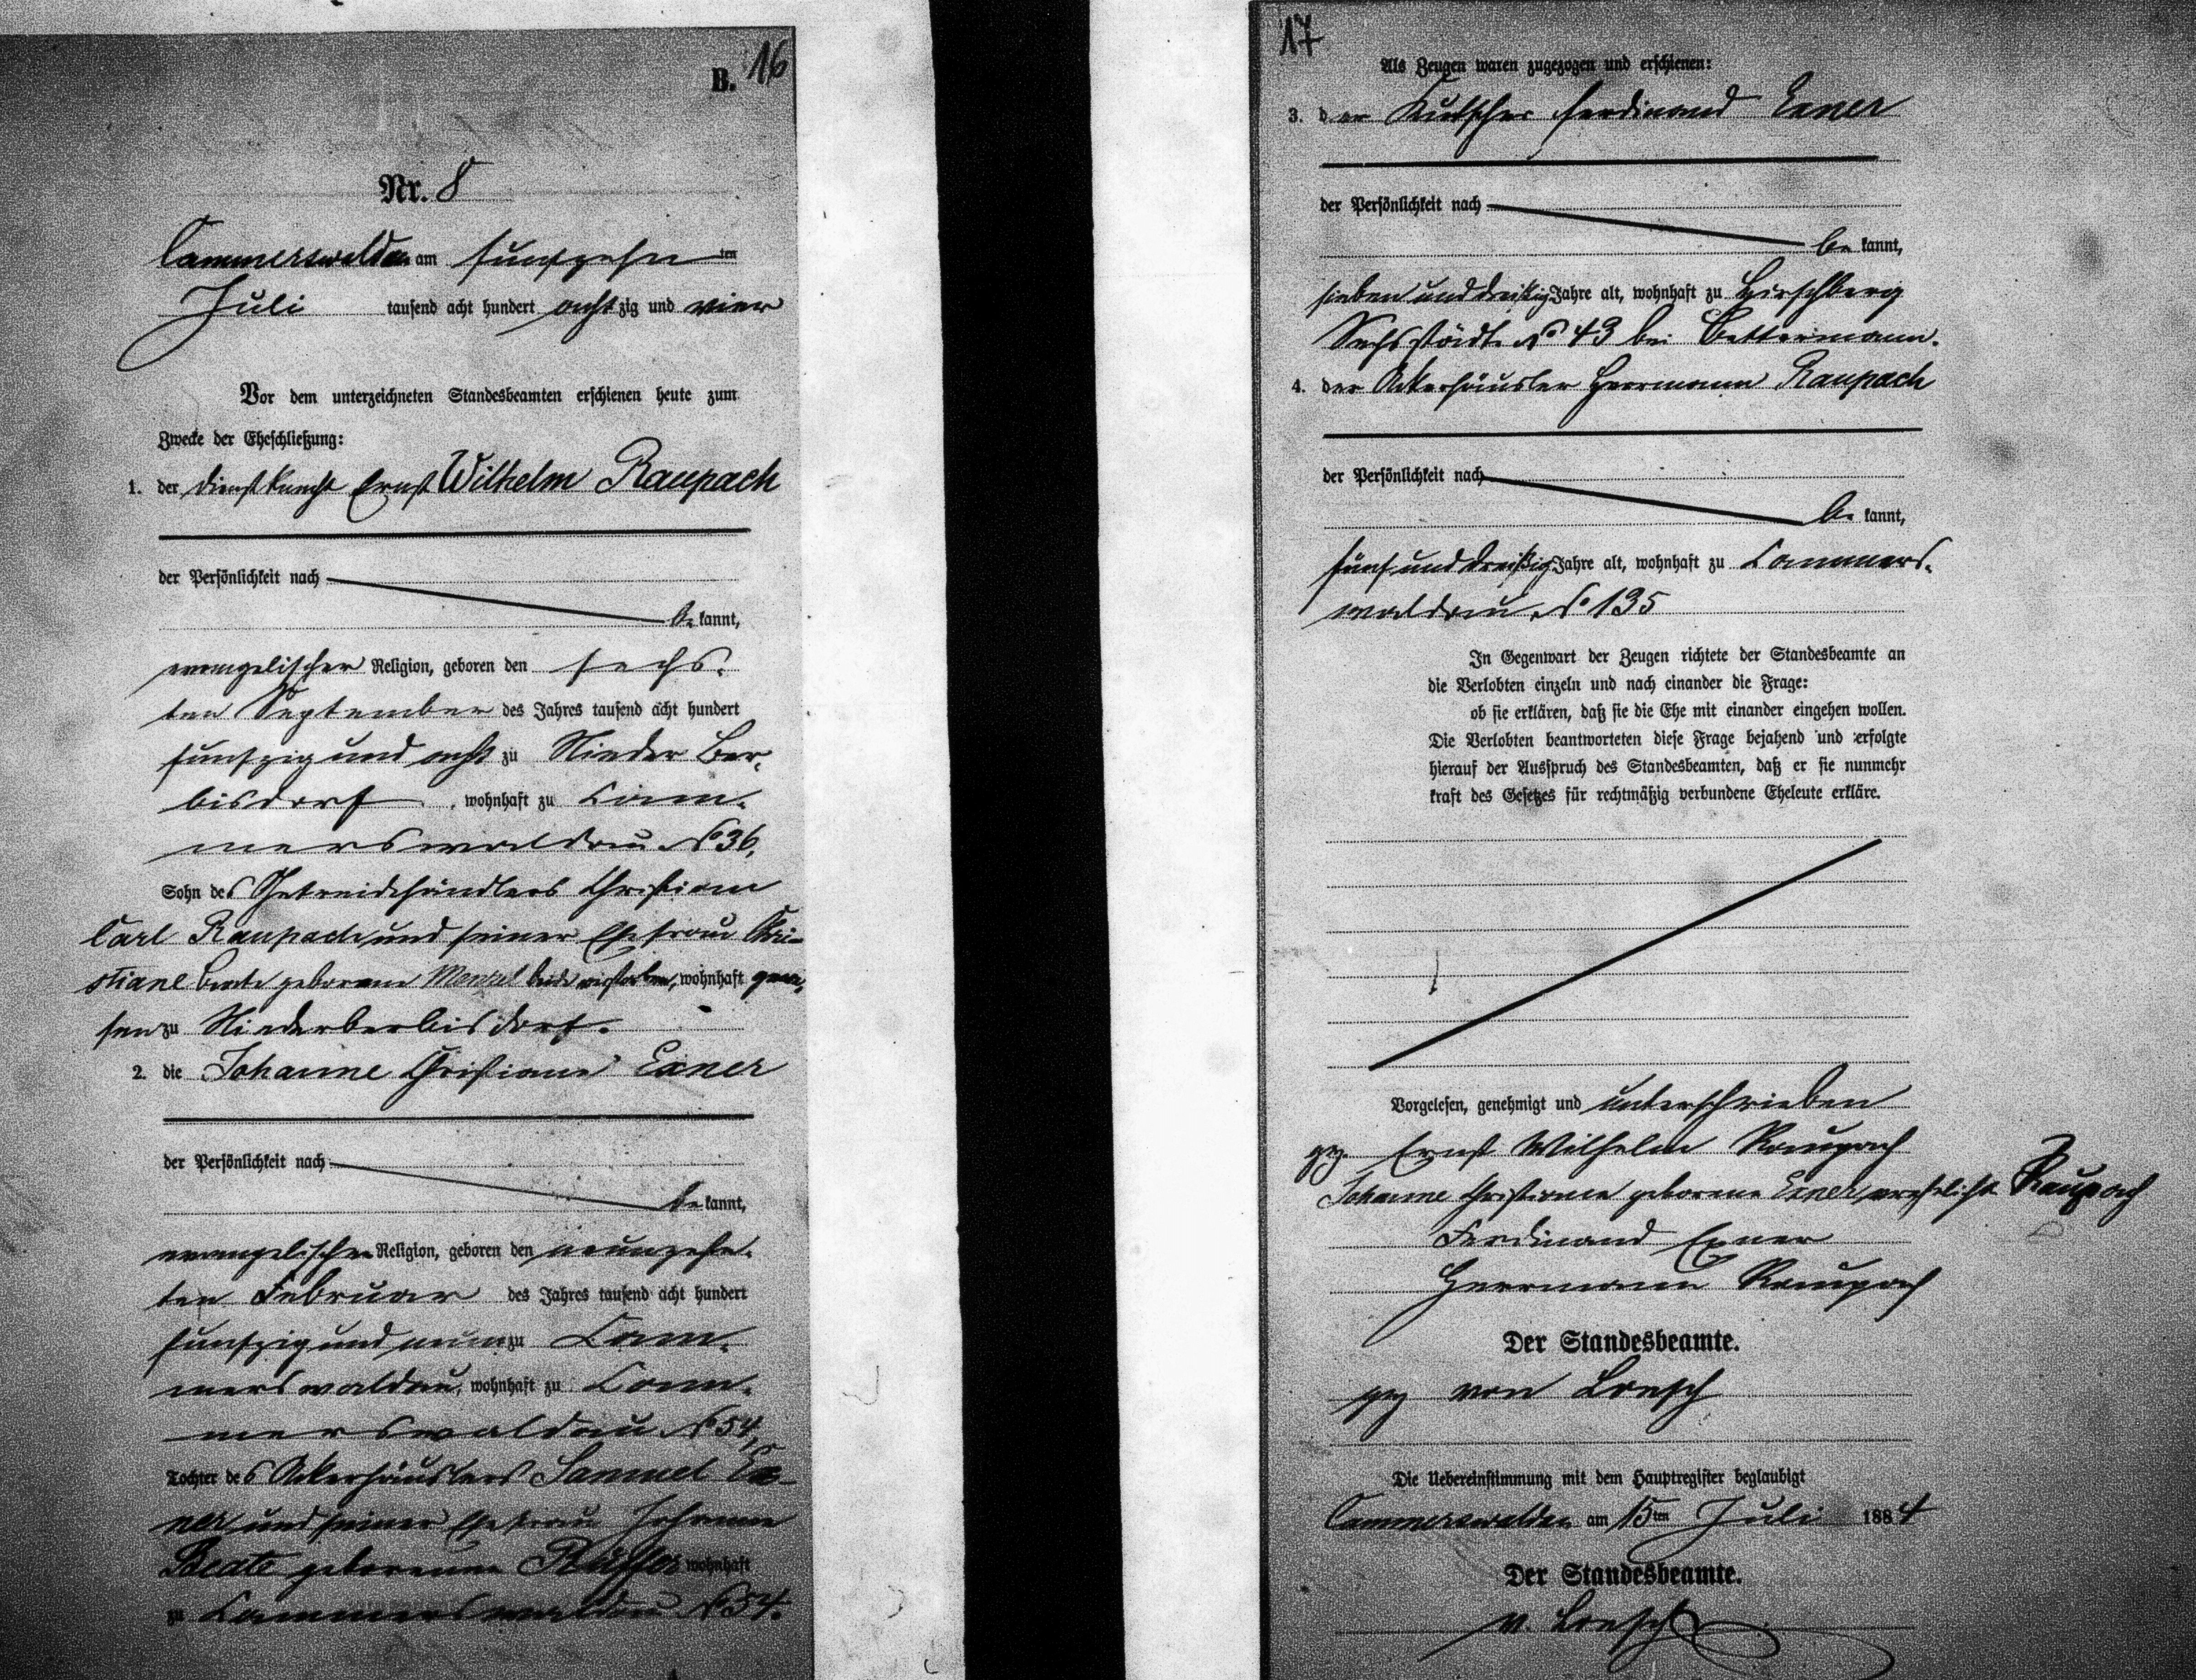 B. 16
Nr. 8
Cammerswaldau am fünfzehn ten
Juli tausend acht hundert achtzig und vier
Vor dem unterzeichneten Standesbeamten erschienen heute zum
Zwecke der Eheschließung:
1. der Dienstknecht Ernst Wilhelm Raupach
der Persönlichkeit nach
be kannt,
evangelischer Religion, geboren den sechs-
ten September des Jahres tausend acht hundert
fünfzig und acht zu Nieder Ber-
bisdorf, wohnhaft zu Cam-
merswaldau No 36,
Sohn des Getreidehändlers Christian
Carl Raupach und seiner Ehefrau Chri-
stiane Beate geborene Menzel beide verstorben, wohnhaft gewe-
sen zu Niederberbisdorf.
2. die Johanne Christiane Exner
der Persönlichkeit nach
be kannt,
evangelischer Religion, geboren den neunzehn-
ten Februar des Jahres tausend acht hundert
fünfzig und neun zu Cam-
merswaldau, wohnhaft zu Cam-
merswaldau No 54,
Tochter des Ackerhäuslers Samuel Ex-
ner und seiner Ehefrau Johanne
Beate geborenen wohnhaft
zu Cammerswaldau No 54.
17
Als Zeugen waren zugezogen und erschienen:
3. der Kutscher Ferdinand Exner
der Persönlichkeit nach
be kannt,
sieben und dreißig Jahre alt, wohnhaft zu Hirschberg
Sechsstädte No 43 bei Bettermann.
4. der Ackerhäusler Herrmann Raupach
der Persönlichkeit nach
be kannt,
fünf und dreißig Jahre alt, wohnhaft zu Cammers-
waldau, No 135
In Gegenwart der Zeugen richtete der Standesbeamte an
die Verlobten einzeln und nach einander die Frage:
ob sie erklären, daß sie die Ehe mit einander eingehen wollen.
Die Verlobten beantworteten diese Frage bejahend und erfolgte
hierauf der Ausspruch des Standesbeamten, daß er sie nunmehr
kraft des Gesetzes für rechtmäßig verbundene Eheleute erkläre.
Vorgelesen, genehmigt und unterschrieben
gez. Ernst Wilhelm Raupach
Johanne Christiane geborene Exner verehelichte Raupach
Ferdinand Exner
Herrmann Raupach
Der Standesbeamte.
gez von Loesch
Die Uebereinstimmung mit dem Hauptregister beglaubigt
Cammerswaldau am 15ten Juli 1884
Der Standesbeamte.
v. Loesch